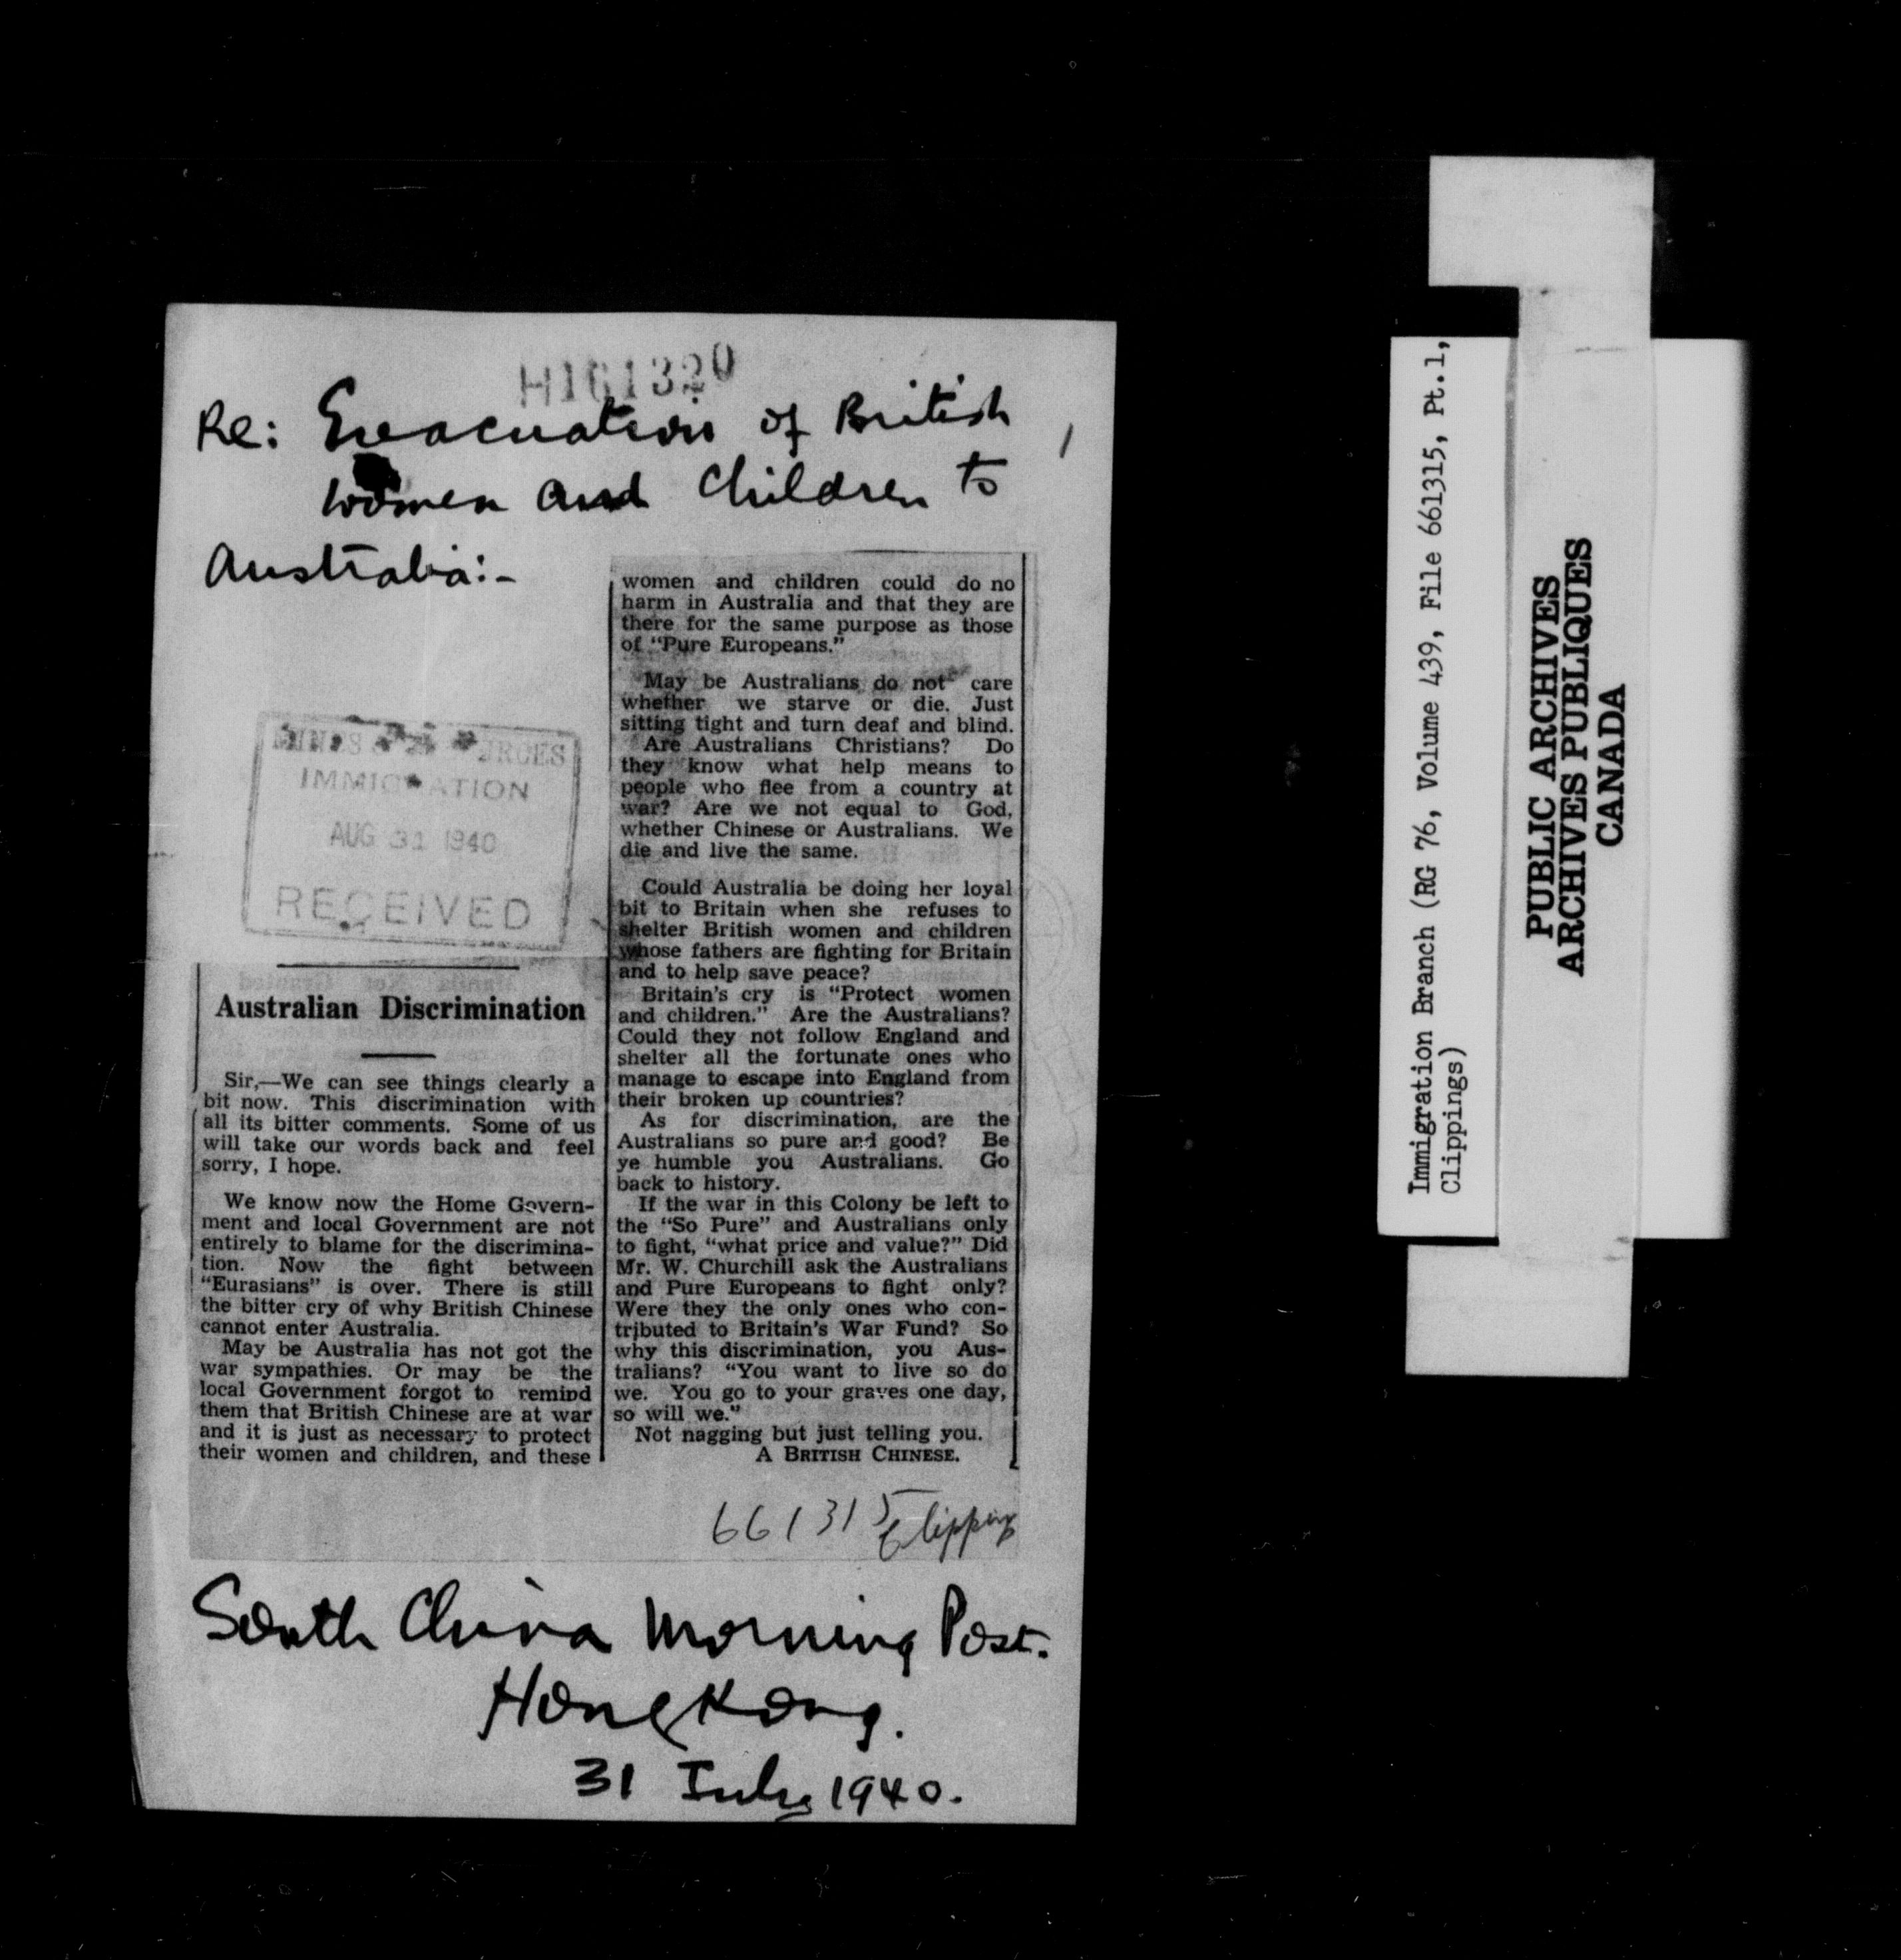 H161320
Re: Evacuation of British
Women and Children to
Australia:-
MINES
IMMIGRATION
AUG 31 1940
RECEIVED
Australian Discrimination
Sir,—We can see things clearly a
bit now. This discrimination with
all its bitter comments. Some of us
will take our words back and feel
sorry, I hope.
We know now the Home Govern-
ment and local Government are not
entirely to blame for the discrimina-
tion. Now the fight between
"Eurasians" is over. There is still
the bitter cry of why British Chinese
cannot enter Australia.
May be Australia has not got the
war sympathies. Or may be the
local Government forgot to remind
them that British Chinese are at war
and it is just as necessary to protect
their women and children, and these
women and children could do no
harm in Australia and that they are
there for the same purpose as those
of "Pure Europeans."
May be Australians do not care
whether we starve or die. Just
sitting tight and turn deaf and blind.
Are Australians Christians? Do
they know what help means to
people who flee from a country at
war? Are we not equal to God,
whether Chinese or Australians. We
die and live the same.
Could Australia be doing her loyal
bit to Britain when she refuses to
shelter British women and children
whose fathers are fighting for Britain
and to help save peace?
Britain's cry is "Protect women
and children." Are the Australians?
Could they not follow England and
shelter all the fortunate ones who
manage to escape into England from
their broken up countries?
As for discrimination, are the
Australians so pure and good? Be
ye humble you Australians. Go
back to history.
If the war in this Colony be left to
the "So Pure" and Australians only
to fight, "what price and value?" Did
Mr. W. Churchill ask the Australians
and Pure Europeans to fight only?
Were they the only ones who con-
tributed to Britain's War Fund? So
why this discrimination, you Aus-
tralians? "You want to live so do
we. You go to your graves one day,
so will we."
Not nagging but just telling you.
A BRITISH CHINESE.
661315 Clippings
South China Morning Post.
HongKong.
31 July 1940.
Immigration Branch (RG 76, Volume 439, File 661315, Pt.1,
Clippings)
PUBLIC ARCHIVES
ARCHIVES PUBLIQUES
CANADA